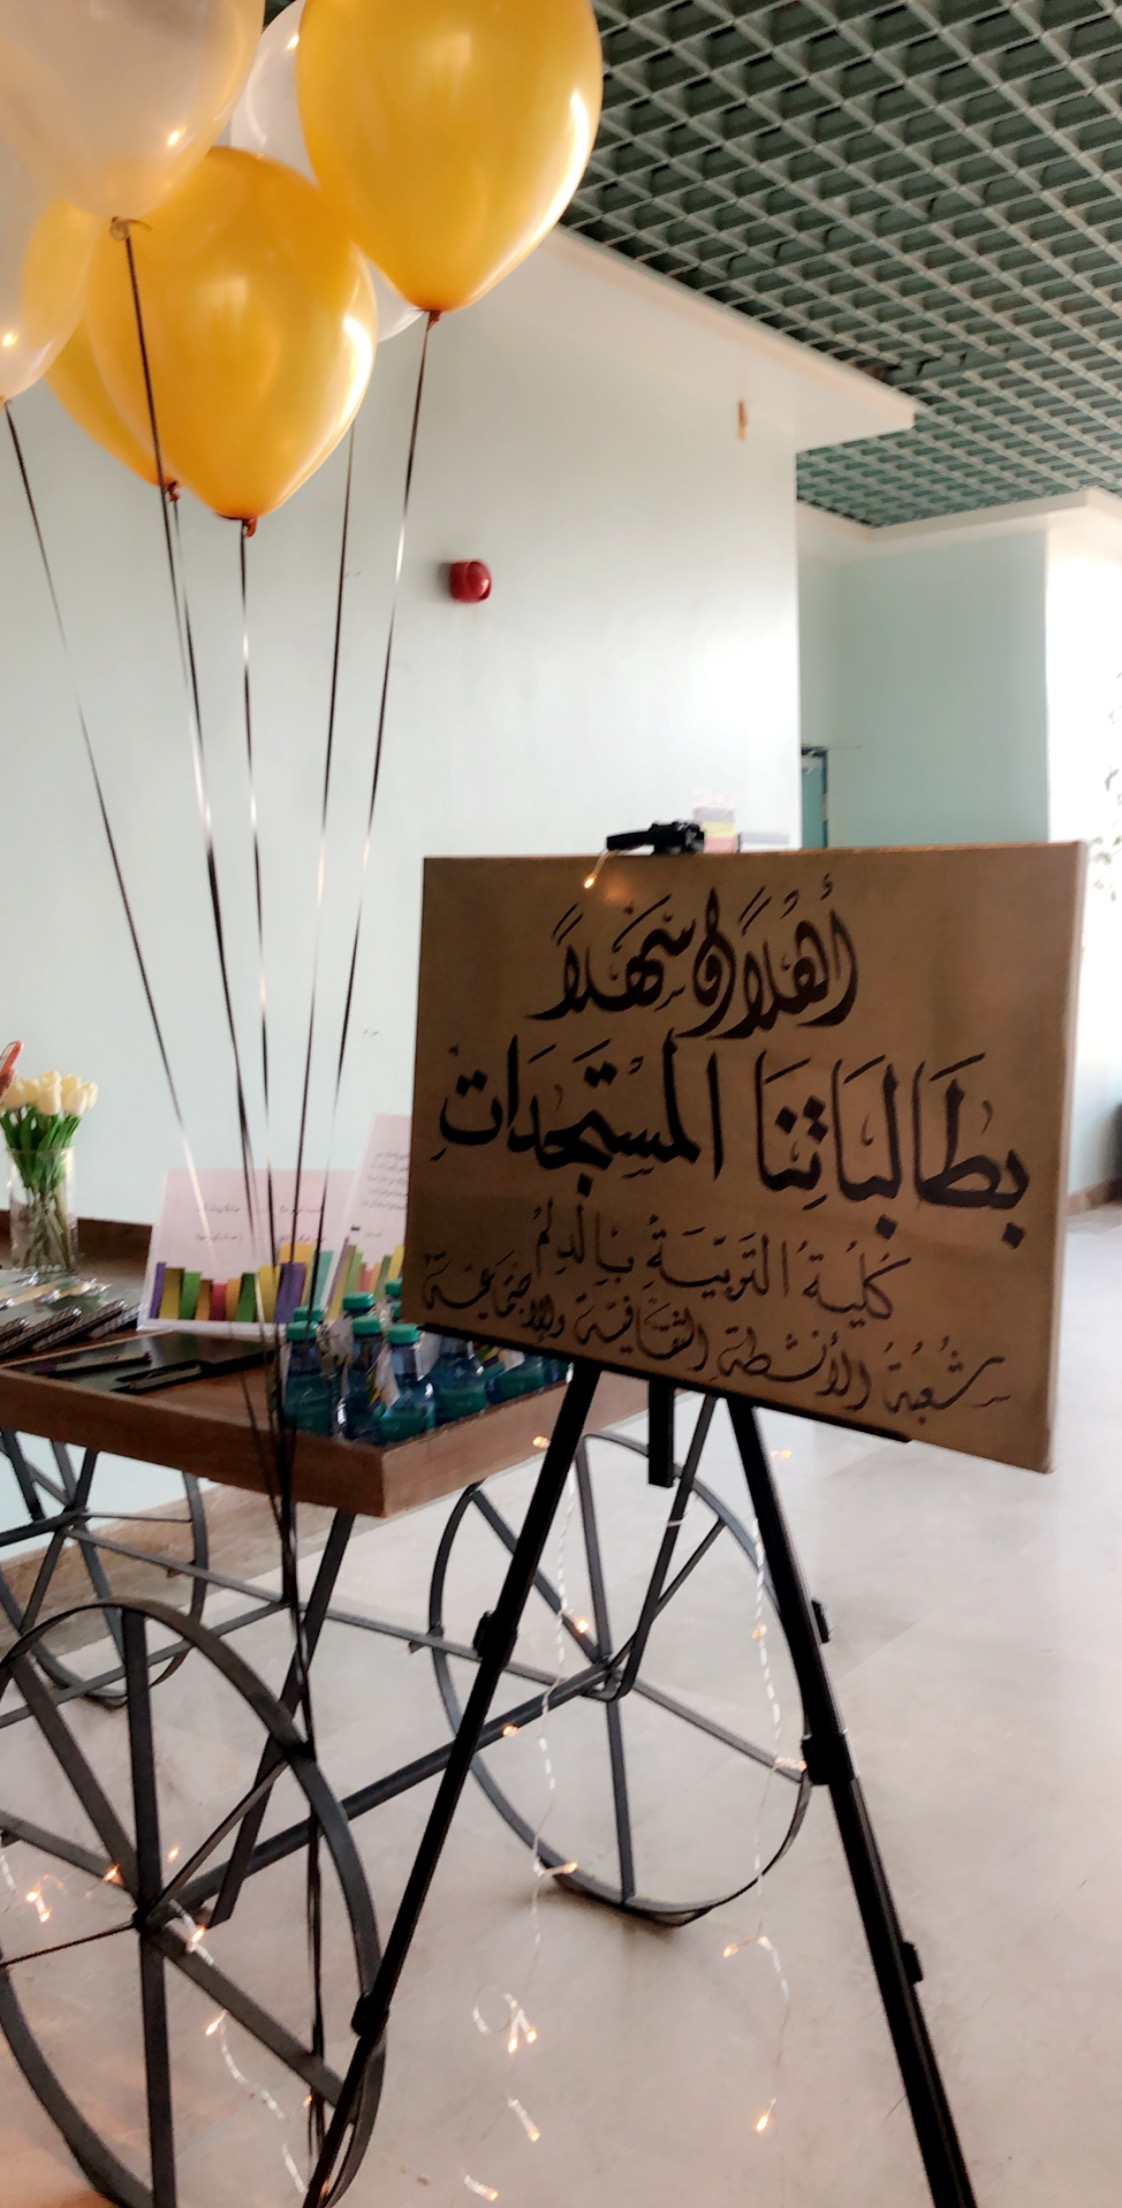 أَهْلاً وَسَهْلاً
بِطَالِبَاتِنَا المُسْتَجِدَاتِ
كُلِيةُ التَّربَيةِ بِالدِلمْ
شُعبَةُ الأَنشطة الثقَافية والإجتماعية